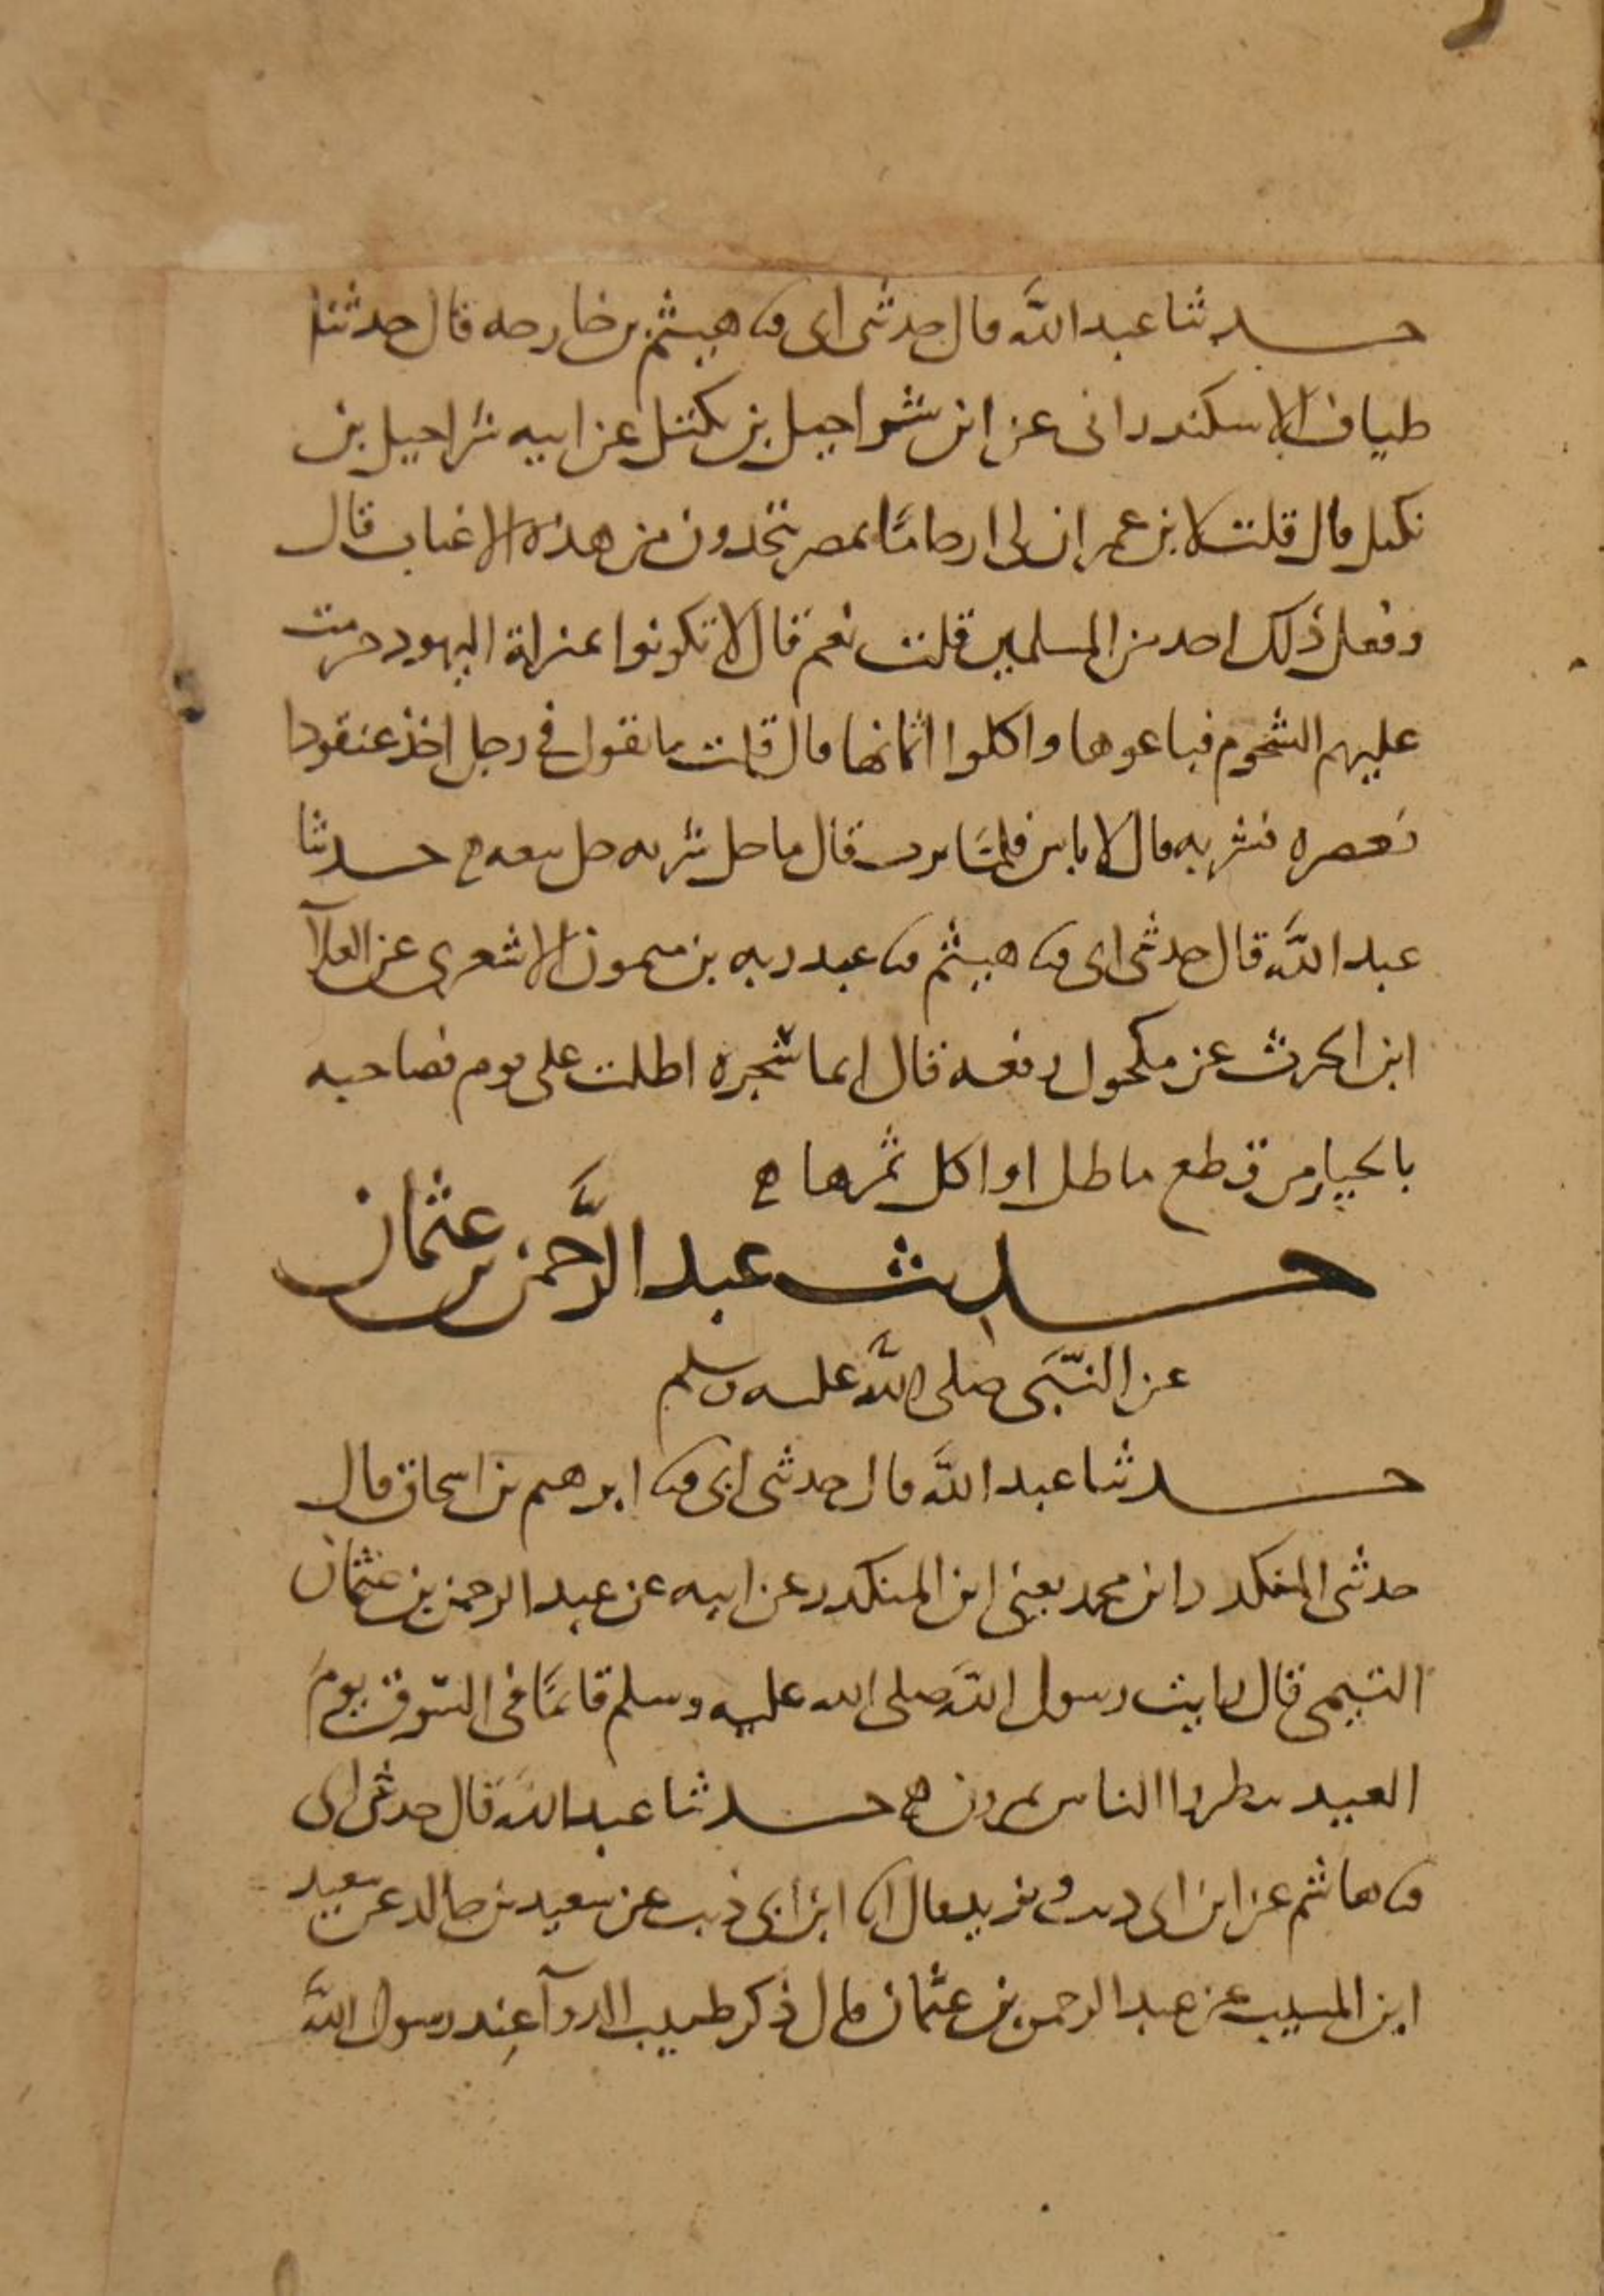 حدثنا عبد الله قال حدثنى ابى ثنا هيثم بن خارجه قال حدثنا
طياف الاسكندرانى عن ابن شراحيل بن بكتل عن ابيه شراحيل بن
بكيل قال قلت لابن عمر ان لى ارحامًا بمصر يتخدون من هذه الاعناب قال
وفعل ذلك احد من المسلمين قلت نعم قال لا تكونوا بمنزلة اليهود حرمت
عليهم الشحوم فباعوها واكلوا اثمانها قال قلت ما تقول فى رجل اخذ عنقودا
فعصره فشربه قال لا باس فلمّا نزلت قال ما حل شربه حل بيعه حدثنا
عبد الله قال حدثنى ابى ثنا هيثم ثنا عبد ربه بن ميمون الاشعرى عن العلآ
ابن الحرث عن مكحول رفعه قال ايما شجره اظلت على قوم فصاحبه
بالخيار من قطع ما ظل او اكل ثمرها
حديث عبد الرَّحمن بن عثمان
عن النّبَى صلى اللَّه عليه وسلم
حدثنا عبد اللَّه قال حدثنى ابى ثنا ابرهيم بن اسحاق قال
حدثنى المنكدر ابن محمد يعنى ابن المنكدر عن ابيه عن عبد الرحمن بن عثمان
التيمى قال رايت رسول اللَّه صلى الله عليه وسلم قائمًا فى السّوق يومَ
العيد ينظر والناس يمرون حدثنا عبد اللَّه قال حدثنى ابى
ثنا هاشم عن ابن ابى ذيب ويزيد قال انا ابن ابى ذيب عن سعيد بن خالد عن سعيد
ابن المسيب عن عبد الرحمن بن عثمان قال ذكر طبيب الدوآ عِند رسول اللَّه